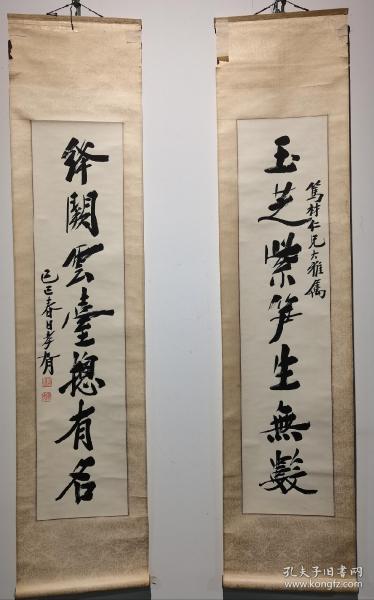 玉芝紫笋生無數
篤村仁兄大雅屬
絳闕雲臺總有名
己巳春日孝胥
孔夫子旧书网